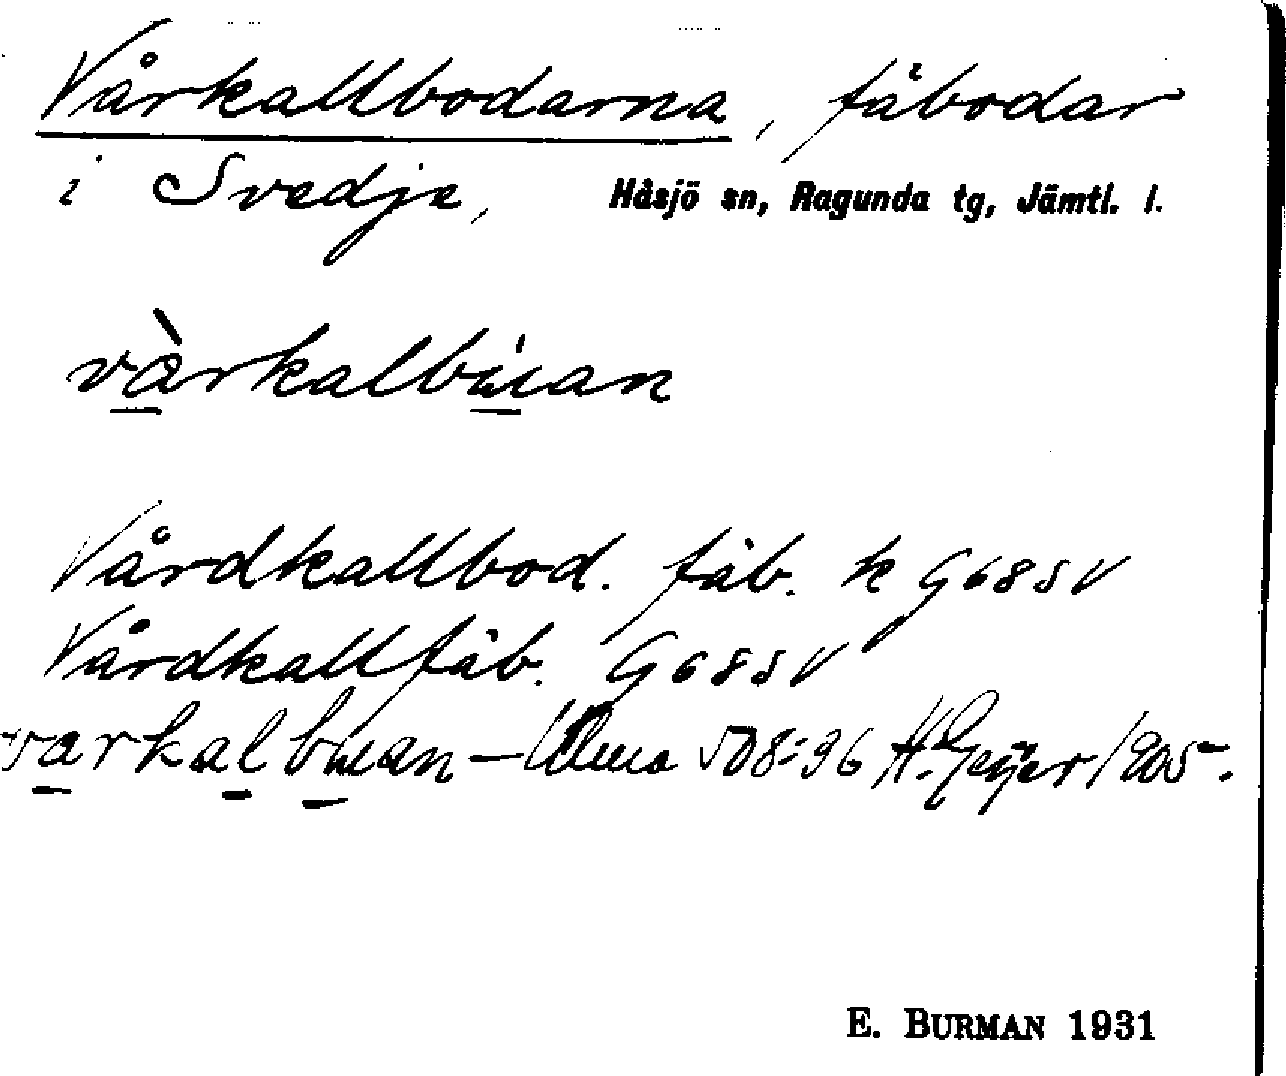 Vårkallbodarna, fäbodar
i Svedje, Håsjö sn, Ragunda tg, Jämtl. l.
vàrkalbu̇an
Vårdkallbod. fäb. k G68SV
Vårdkallfäb. G68SV
varkalbuan – Ulma 508:36 H. Geijer 1905.
E. BURMAN 1931